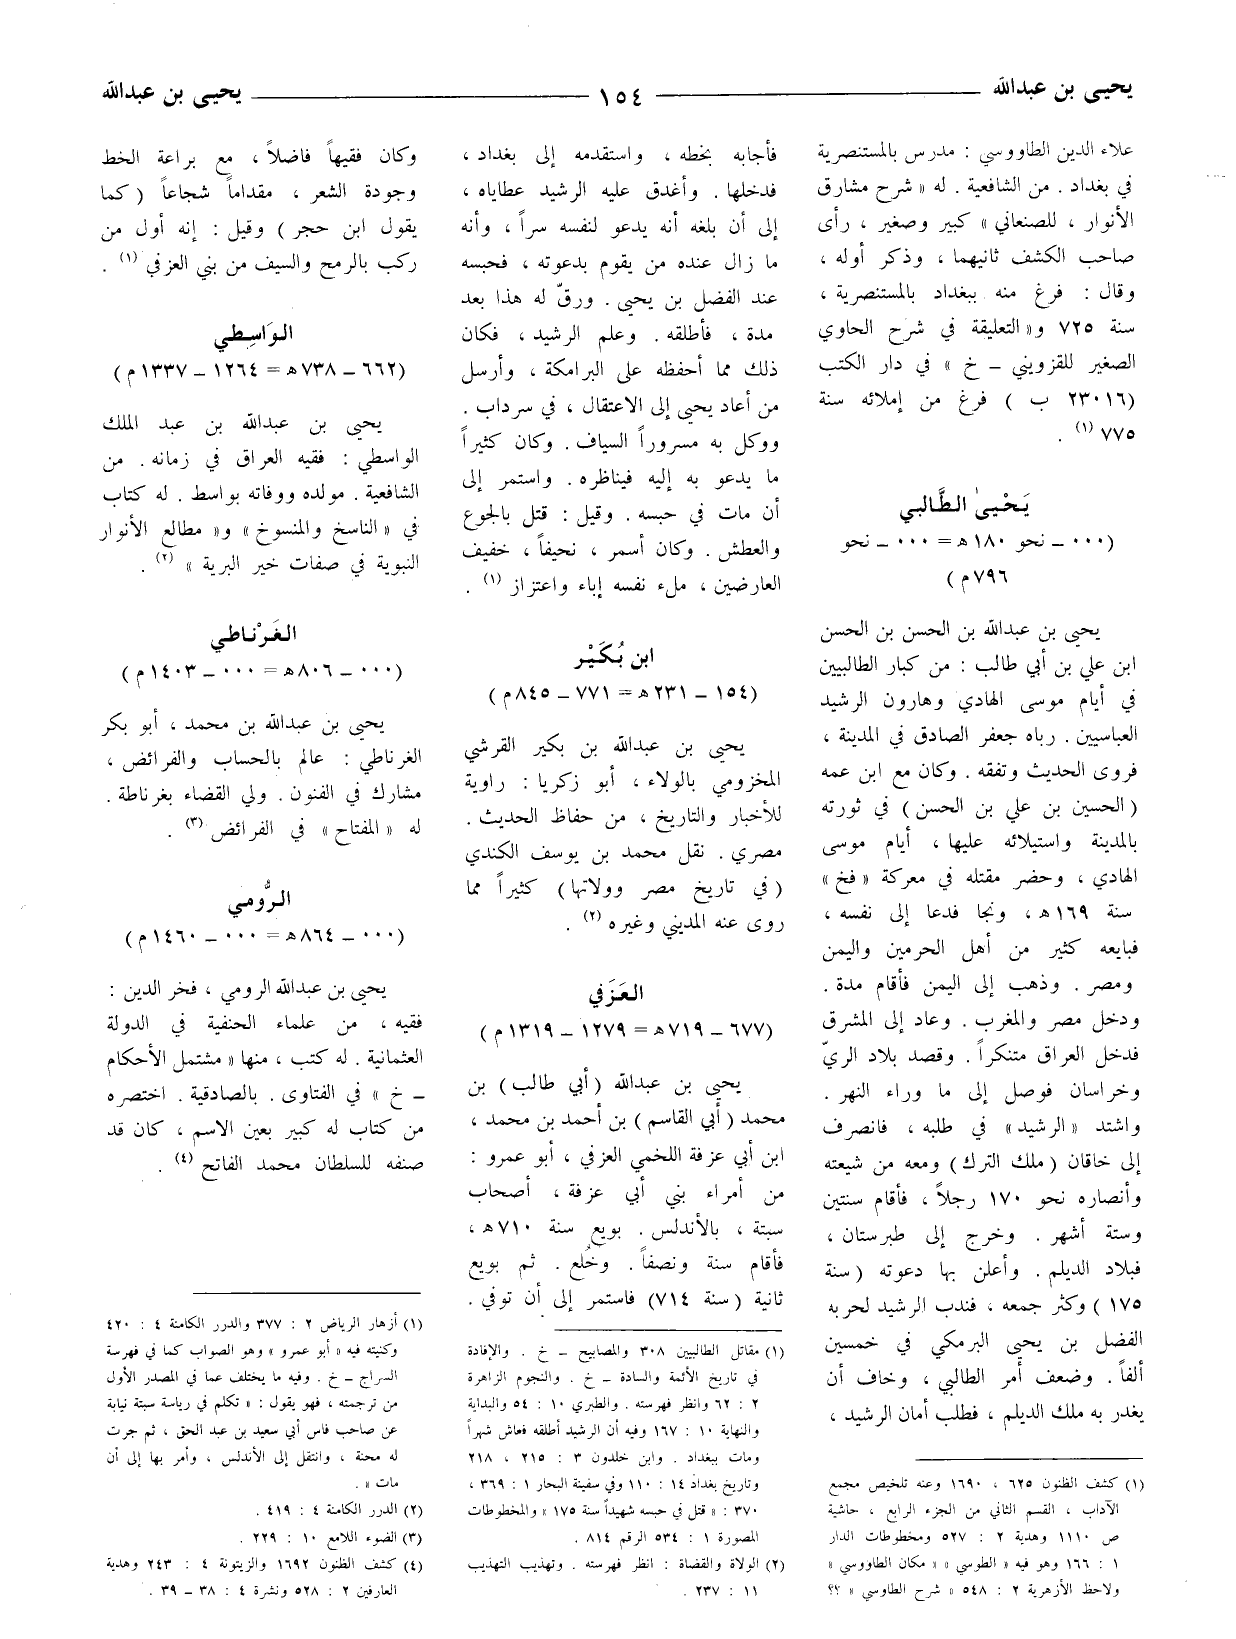 يحيى بن عبدالله
١٥٤
يحيى بن عبدالله
علاء الدين الطاووسي : مدرس بالمستنصرية
في بغداد . من الشافعية . له « شرح مشارق
الأنوار ، للصنعاني » كبير وصغير ، رأى
صاحب الكشف ثانيهما ، وذكر أوله ،
وقال : فرغ منه ببغداد بالمستنصرية ،
سنة ٧٢٥ و« التعليقة في شرح الحاوي
الصغير للقزويني – خ » في دار الكتب
(٢٣٠١٦ ب ) فرغ من إملائه سنة
٧٧٥ (١) .
يَحْيىٰ الطَّالبي
(٠٠٠ – نحو ١٨٠ ه‍ = ٠٠٠ – نحو
٧٩٦ م )
يحيى بن عبدالله بن الحسن بن الحسن
ابن علي بن أبي طالب : من كبار الطالبيين
في أيام موسى الهادي وهارون الرشيد
العباسيين . رباه جعفر الصادق في المدينة ،
فروى الحديث وتفقه . وكان مع ابن عمه
(الحسين بن علي بن الحسن ) في ثورته
بالمدينة واستيلائه عليها ، أيام موسى
الهادي ، وحضر مقتله في معركة « فخ »
سنة ١٦٩ ه‍ ، ونجا فدعا إلى نفسه ،
فبايعه كثير من أهل الحرمين واليمن
ومصر . وذهب إلى اليمن فأقام مدة .
ودخل مصر والمغرب . وعاد إلى المشرق
فدخل العراق متنكراً . وقصد بلاد الريّ
وخراسان فوصل إلى ما وراء النهر .
واشتد « الرشيد » في طلبه ، فانصرف
إلى خاقان ( ملك الترك ) ومعه من شيعته
وأنصاره نحو ١٧٠ رجلاً ، فأقام سنتين
وستة أشهر . وخرج إلى طبرستان ،
فبلاد الديلم . وأعلن بها دعوته ( سنة
١٧٥ ) وكثر جمعه ، فندب الرشيد لحربه
الفضل بن يحيى البرمكي في خمسين
ألفاً . وضعف أمر الطالبي ، وخاف أن
يغدر به ملك الديلم ، فطلب أمان الرشيد ،
(١) كشف الظنون ٦٢٥ ، ١٦٩٠ وعنه تلخيص مجمع
الآداب ، القسم الثاني من الجزء الرابع ، حاشية
ص ١١١٠ وهدية ٢ : ٥٢٧ ومخطوطات الدار
١ : ١٦٦ وهو فيه « الطوسي » « مكان الطاووسي »
ولاحظ الأزهرية ٢ : ٥٤٨ « شرح الطاوسي » ؟؟
فأجابه بخطه ، واستقدمه إلى بغداد ،
فدخلها . وأغدق عليه الرشيد عطاياه ،
إلى أن بلغه أنه يدعو لنفسه سراً ، وأنه
ما زال عنده من يقوم بدعوته ، فحبسه
عند الفضل بن يحيى . ورقّ له هذا بعد
مدة ، فأطلقه . وعلم الرشيد ، فكان
ذلك مما أحفظه على البرامكة ، وأرسل
من أعاد يحيى إلى الاعتقال ، في سرداب .
ووكل به مسروراً السياف . وكان كثيراً
ما يدعو به إليه فيناظره . واستمر إلى
أن مات في حبسه . وقيل : قتل بالجوع
والعطش . وكان أسمر ، نحيفاً ، خفيف
العارضين ، ملء نفسه إباء واعتزاز (١) .
ابن بُكَيْر
(١٥٤ – ٢٣١ ه‍ = ٧٧١ – ٨٤٥ م )
يحيى بن عبدالله بن بكير القرشي
المخزومي بالولاء ، أبو زكريا : راوية
للأخبار والتاريخ ، من حفاظ الحديث .
مصري . نقل محمد بن يوسف الكندي
( في تاريخ مصر وولاتها ) كثيراً مما
روى عنه المديني وغيره (٢) .
العَزَفي
(٦٧٧ – ٧١٩ ه‍ = ١٢٧٩ – ١٣١٩ م )
يحيى بن عبدالله ( أبي طالب ) بن
محمد ( أبي القاسم ) بن أحمد بن محمد ،
ابن أبي عزفة اللخمي العزفي ، أبو عمرو :
من أمراء بني أبي عزفة ، أصحاب
سبتة ، بالأندلس . بويع سنة ٧١٠ ه‍ ،
فأقام سنة ونصفاً . وخُلع . ثم بويع
ثانية ( سنة ٧١٤ ) فاستمر إلى أن توفي .
(١) مقاتل الطالبيين ٣٠٨ والمصابيح – خ . والإفادة
في تاريخ الأئمة والسادة – خ . والنجوم الزاهرة
٢ : ٦٢ وانظر فهرسته . والطبري ١٠ : ٥٤ والبداية
والنهاية ١٠ : ١٦٧ وفيه أن الرشيد أطلقه فعاش شهراً
ومات ببغداد . وابن خلدون ٣ : ٢١٥ ، ٢١٨
وتاريخ بغداد ١٤ : ١١٠ وفي سفينة البحار ١ : ٣٦٩ ،
٣٧٠ : « قتل في حبسه شهيداً سنة ١٧٥ » والمخطوطات
المصورة ١ : ٥٣٤ الرقم ٨١٤ .
(٢) الولاة والقضاة : انظر فهرسته . وتهذيب التهذيب
١١ : ٢٣٧ .
وكان فقيهاً فاضلاً ، مع براعة الخط
وجودة الشعر ، مقداماً شجاعاً ( كما
يقول ابن حجر ) وقيل : إنه أول من
ركب بالرمح والسيف من بني العزفي (١) .
الوَاسِطي
(٦٦٢ – ٧٣٨ ه‍ = ١٢٦٤ – ١٣٣٧ م )
يحيى بن عبدالله بن عبد الملك
الواسطي : فقيه العراق في زمانه . من
الشافعية . مولده ووفاته بواسط . له كتاب
في « الناسخ والمنسوخ » و« مطالع الأنوار
النبوية في صفات خير البرية » (٢) .
الغَرْناطي
(٠٠٠ – ٨٠٦ ه‍ = ٠٠٠ – ١٤٠٣ م )
يحيى بن عبدالله بن محمد ، أبو بكر
الغرناطي : عالم بالحساب والفرائض ،
مشارك في الفنون . ولي القضاء بغرناطة .
له « المفتاح » في الفرائض (٣) .
الرُّومي
(٠٠٠ – ٨٦٤ ه‍ = ٠٠٠ – ١٤٦٠ م )
يحيى بن عبدالله الرومي ، فخر الدين :
فقيه ، من علماء الحنفية في الدولة
العثمانية . له كتب ، منها « مشتمل الأحكام
– خ » في الفتاوى . بالصادقية . اختصره
من كتاب له كبير بعين الاسم ، كان قد
صنفه للسلطان محمد الفاتح (٤) .
(١) أزهار الرياض ٢ : ٣٧٧ والدرر الكامنة ٤ : ٤٢٠
وكنيته فيه « أبو عمرو » وهو الصواب كما في فهرسة
السراج – خ . وفيه ما يختلف عما في المصدر الأول
من ترجمته ، فهو يقول : « تكلم في رياسة سبتة نيابة
عن صاحب فاس أبي سعيد بن عبد الحق ، ثم جرت
له محنة ، وانتقل إلى الأندلس ، وأمر بها إلى أن
مات » .
(٢) الدرر الكامنة ٤ : ٤١٩ .
(٣) الضوء اللامع ١٠ : ٢٢٩ .
(٤) كشف الظنون ١٦٩٢ والزيتونة ٤ : ٢٤٣ وهدية
العارفين ٢ : ٥٢٨ ونشرة ٤ : ٣٨ – ٣٩ .